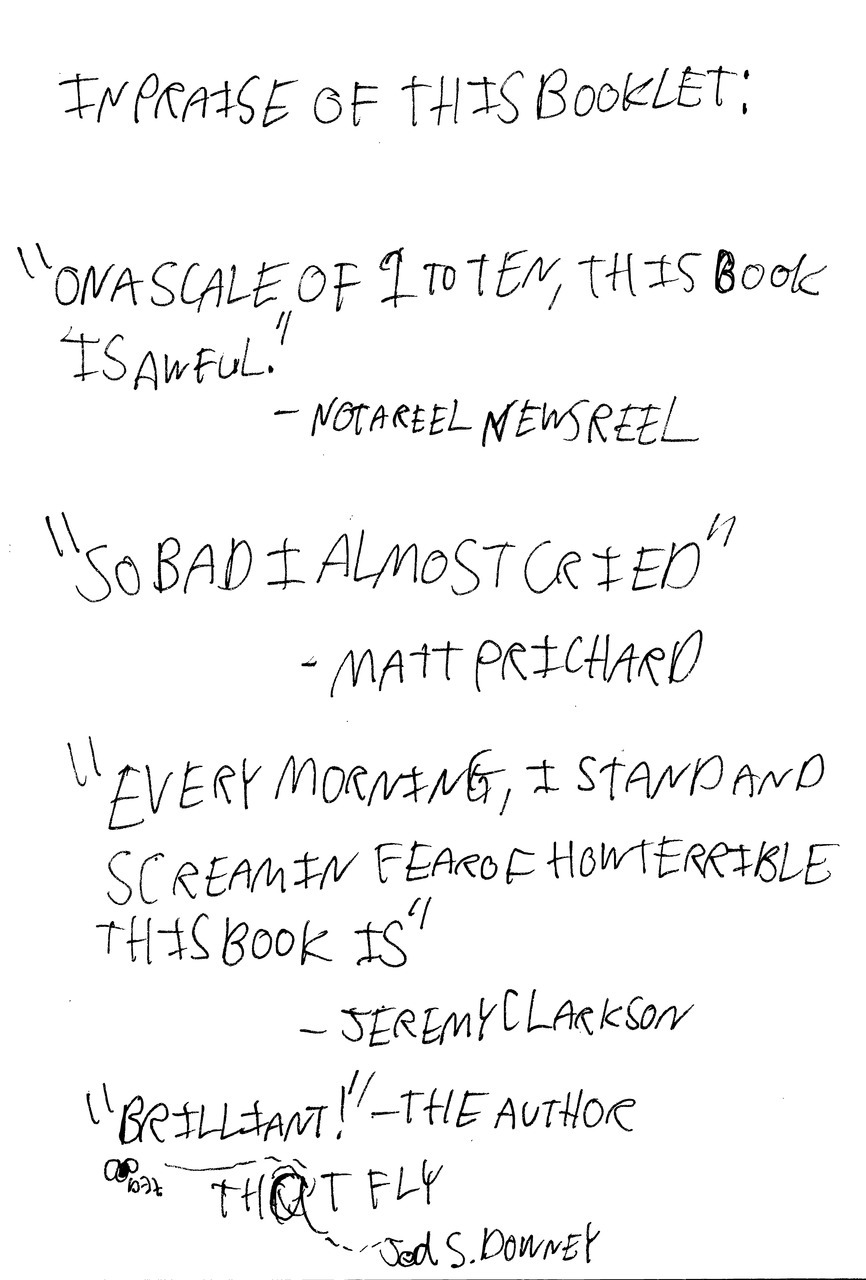 IN PRAISE OF THIS BOOKLET:
"ON A SCALE OF 1 TO TEN, THIS BOOK
IS AWFUL."
- NOT A REEL NEWSREEL
"SO BAD I ALMOST CRIED"
- MATT PRICHARD
"EVERY MORNING, I STAND AND
SCREAM IN FEAR OF HOW TERRIBLE
THIS BOOK IS"
- JEREMY CLARKSON
"BRILLIANT!" - THE AUTHOR
THAT FLY
S. DOWNEY